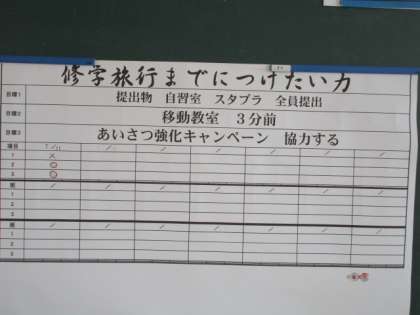 修学旅行までにつけたい力
目標1 提出物 自習室 スタプラ 全員提出
目標2 移動教室 3分前
目標3 あいさつ強化キャンペーン 協力する
項目 / / / / / /
1 ×
2 ○
3 ○
/ / / / / / /
1
2
3
/ / / / / / /
1
2
3